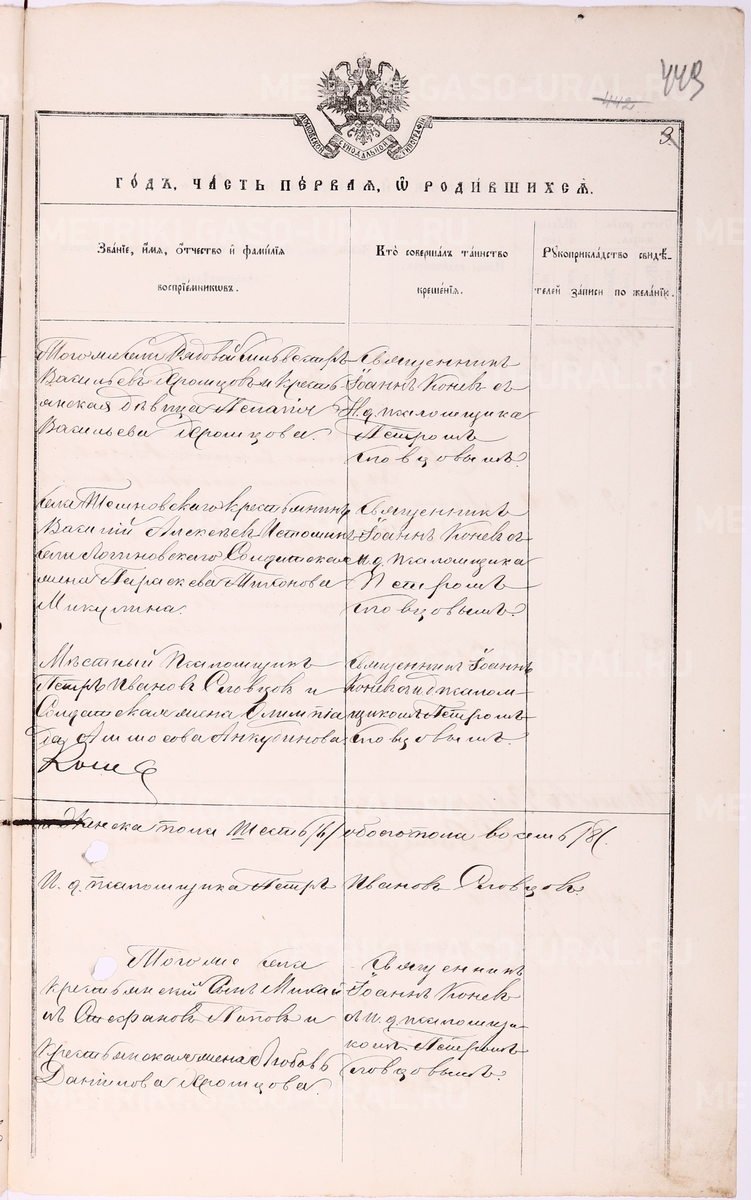 443
442
3
МОСКОВСКОЙ СѴНОДАЛЬНОЙ ТИПОГРАФІИ
ГОДЪ, ЧАСТЬ ПЕРВАЯ, Ѡ РОДИВШИХСЯ.
Званіе, имя, отчество и фамилія
воспріемниковъ.
Кто совершалъ таинство
крещенія.
Рукоприкладство свидѣ-
телей записи по желанію.
Тогоже села Рядовой
Васильевъ Храмцовъ и кресть
янская дѣвица Пелагія
Васильева Храмцова.
Священникъ
Іоаннъ Коневъ съ
И. д. псаломщика
Петромъ
Словцовымъ.
села крестьянинъ
Василій Алексѣевъ Истоминъ
села Логиновскаго Солдатская
жена Параскева Тихонова
Микулина
Священникъ
Іоаннъ Коневъ съ
и. д. псаломщика
Петромъ
Словцовымъ.
Мѣстный Псаломщикъ
Петръ Ивановъ Словцовъ и
Солдатская жена Олимпіа
да Аммосова
Священникъ Іоаннъ
Коневъ съ и д псалом
щикомъ Петромъ
Словцовымъ.
и женска пола шесть /6/ обоего пола восемь /8/.
И. д. псаломщика Петръ Ивановъ Словцовъ.
Тогоже села
крестьянскій сынъ Михаи
лъ Стефановъ Поповъ и
крестьянская жена Любовь
Даніилова Храмцова.
Священникъ
Іоаннъ Коневъ
съ и. д. псаломщи
комъ Петромъ
Словцовымъ.